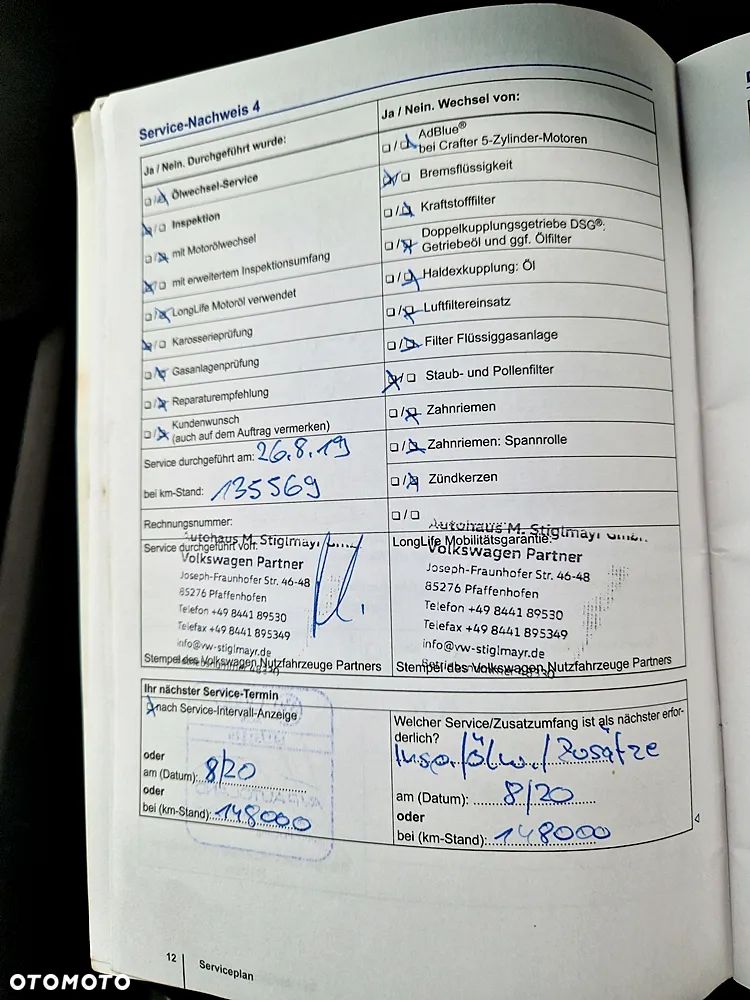 Service-Nachweis 4
Ja / Nein. Durchgeführt wurde:
Ölwechsel-Service
Inspektion
mit Motorölwechsel
mit erweitertem Inspektionsumfang
LongLife Motoröl verwendet
Karosserieprüfung
Gasanlagenprüfung
Reparaturempfehlung
Kundenwunsch
(auch auf dem Auftrag vermerken)
Service durchgeführt am: 26.8.19
bei km-Stand: 135569
Rechnungsnummer:
Service durchgeführt von:
Autohaus M. Stiglmayr GmbH
Volkswagen Partner
Joseph-Fraunhofer Str. 46-48
85276 Pfaffenhofen
Telefon +49 8441 89530
Telefax +49 8441 895349
info@vw-stiglmayr.de
Stempel des Volkswagen Nutzfahrzeuge Partners
Ja / Nein. Wechsel von:
AdBlue®
bei Crafter 5-Zylinder-Motoren
Bremsflüssigkeit
Kraftstofffilter
Doppelkupplungsgetriebe DSG®:
Getriebeöl und ggf. Ölfilter
Haldexkupplung: Öl
Luftfiltereinsatz
Filter Flüssiggasanlage
Staub- und Pollenfilter
Zahnriemen
Zahnriemen: Spannrolle
Zündkerzen
LongLife Mobilitätsgarantie:
Autohaus M. Stiglmayr GmbH
Volkswagen Partner
Joseph-Fraunhofer Str. 46-48
85276 Pfaffenhofen
Telefon +49 8441 89530
Telefax +49 8441 895349
info@vw-stiglmayr.de
Stempel des Volkswagen Nutzfahrzeuge Partners
Ihr nächster Service-Termin
nach Service-Intervall-Anzeige
oder
am (Datum): 8/20
oder
bei (km-Stand): 148000
Welcher Service/Zusatzumfang ist als nächster erfor-
derlich?
Insp./Ölw./Zusätze
am (Datum): 8/20
oder
bei (km-Stand): 148000
12
Serviceplan
OTOMOTO